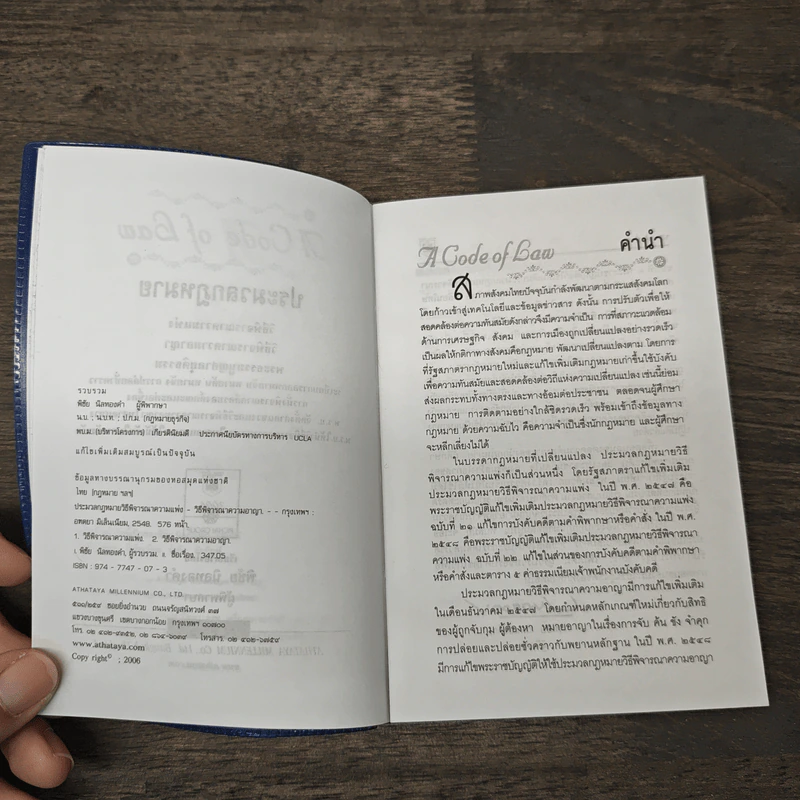 รวบรวม
พิชัย นิลทองคำ ผู้พิพากษา
น.บ. ; น.บ.ท. ; ป.ก.ม. (กฎหมายธุรกิจ)
พบ.ม. (บริหารโครงการ) เกียรตินิยมดี ประกาศนียบัตรทางการบริหาร UCLA
แก้ไขเพิ่มเติมสมบูรณ์เป็นปัจจุบัน
ข้อมูลทางบรรณานุกรมของหอสมุดแห่งชาติ
ไทย [กฎหมาย ฯลฯ]
ประมวลกฎหมายวิธีพิจารณาความแพ่ง - วิธีพิจารณาความอาญา. - - กรุงเทพฯ :
อฑตยา มิเล็นเนียม, 2548. 576 หน้า.
1. วิธีพิจารณาความแพ่ง 2. วิธีพิจารณาความอาญา.
I. พิชัย นิลทองคำ, ผู้รวบรวม. II. ชื่อเรื่อง. 347.05
ISBN : 974 - 7747 - 07 - 3
ATHATAYA MILLENNIUM CO., LTD.
๕๐๐/๒๕๙ ซอยยิ่งอำนวย ถนนจรัญสนิทวงศ์ ๓๗
แขวงบางขุนศรี เขตบางกอกน้อย กรุงเทพฯ ๑๐๗๐๐
www.athataya.com
Copy right© ; 2006
A Code of Law คำนำ
สภาพสังคมไทยปัจจุบันกำลังพัฒนาตามกระแสสังคมโลก
โดยก้าวเข้าสู่เทคโนโลยีและข้อมูลข่าวสาร ดังนั้น การปรับตัวเพื่อให้
สอดคล้องต่อความทันสมัยดังกล่าวจึงมีความจำเป็น การที่สภาวะแวดล้อม
ด้านการเศรษฐกิจ สังคม และการเมืองถูกเปลี่ยนแปลงอย่างรวดเร็ว
เป็นผลให้กติกาทางสังคมคือกฎหมาย พัฒนาเปลี่ยนแปลงตาม โดยการ
ที่รัฐสภาตรากฎหมายใหม่และแก้ไขเพิ่มเติมกฎหมายเก่าขึ้นใช้บังคับ
เพื่อความทันสมัยและสอดคล้องต่อวิถีแห่งความเปลี่ยนแปลง เช่นนี้ย่อม
ส่งผลกระทบทั้งทางตรงและทางอ้อมต่อประชาชน ตลอดจนผู้ศึกษา
กฎหมาย การติดตามอย่างใกล้ชิดรวดเร็ว พร้อมเข้าถึงข้อมูลทาง
กฎหมาย ด้วยความฉับไว คือความจำเป็นซึ่งนักกฎหมาย และผู้ศึกษา
จะหลีกเลี่ยงไม่ได้
ในบรรดากฎหมายที่เปลี่ยนแปลง ประมวลกฎหมายวิธี
พิจารณาความแพ่งก็เป็นส่วนหนึ่ง โดยรัฐสภาตราแก้ไขเพิ่มเติม
ประมวลกฎหมายวิธีพิจารณาความแพ่ง ในปี พ.ศ. ๒๕๔๗ คือ
พระราชบัญญัติแก้ไขเพิ่มเติมประมวลกฎหมายวิธีพิจารณาความแพ่ง
ฉบับที่ ๒๑ แก้ไขการบังคับคดีตามคำพิพากษาหรือคำสั่ง ในปี พ.ศ.
๒๕๔๘ คือพระราชบัญญัติแก้ไขเพิ่มเติมประมวลกฎหมายวิธีพิจารณา
ความแพ่ง ฉบับที่ ๒๒ แก้ไขในส่วนของการบังคับคดีตามคำพิพากษา
หรือคำสั่งและตาราง ๕ ค่าธรรมเนียมเจ้าพนักงานบังคับคดี
ประมวลกฎหมายวิธีพิจารณาความอาญามีการแก้ไขเพิ่มเติม
ในเดือนธันวาคม ๒๕๔๗ โดยกำหนดหลักเกณฑ์ใหม่เกี่ยวกับสิทธิ
ของผู้ถูกจับกุม ผู้ต้องหา หมายอาญาในเรื่องการจับ ค้น ขัง จำคุก
การปล่อยและปล่อยชั่วคราวกับพยานหลักฐาน ในปี พ.ศ. ๒๕๔๘
มีการแก้ไขพระราชบัญญัติให้ใช้ประมวลกฎหมายวิธีพิจารณาความอาญา